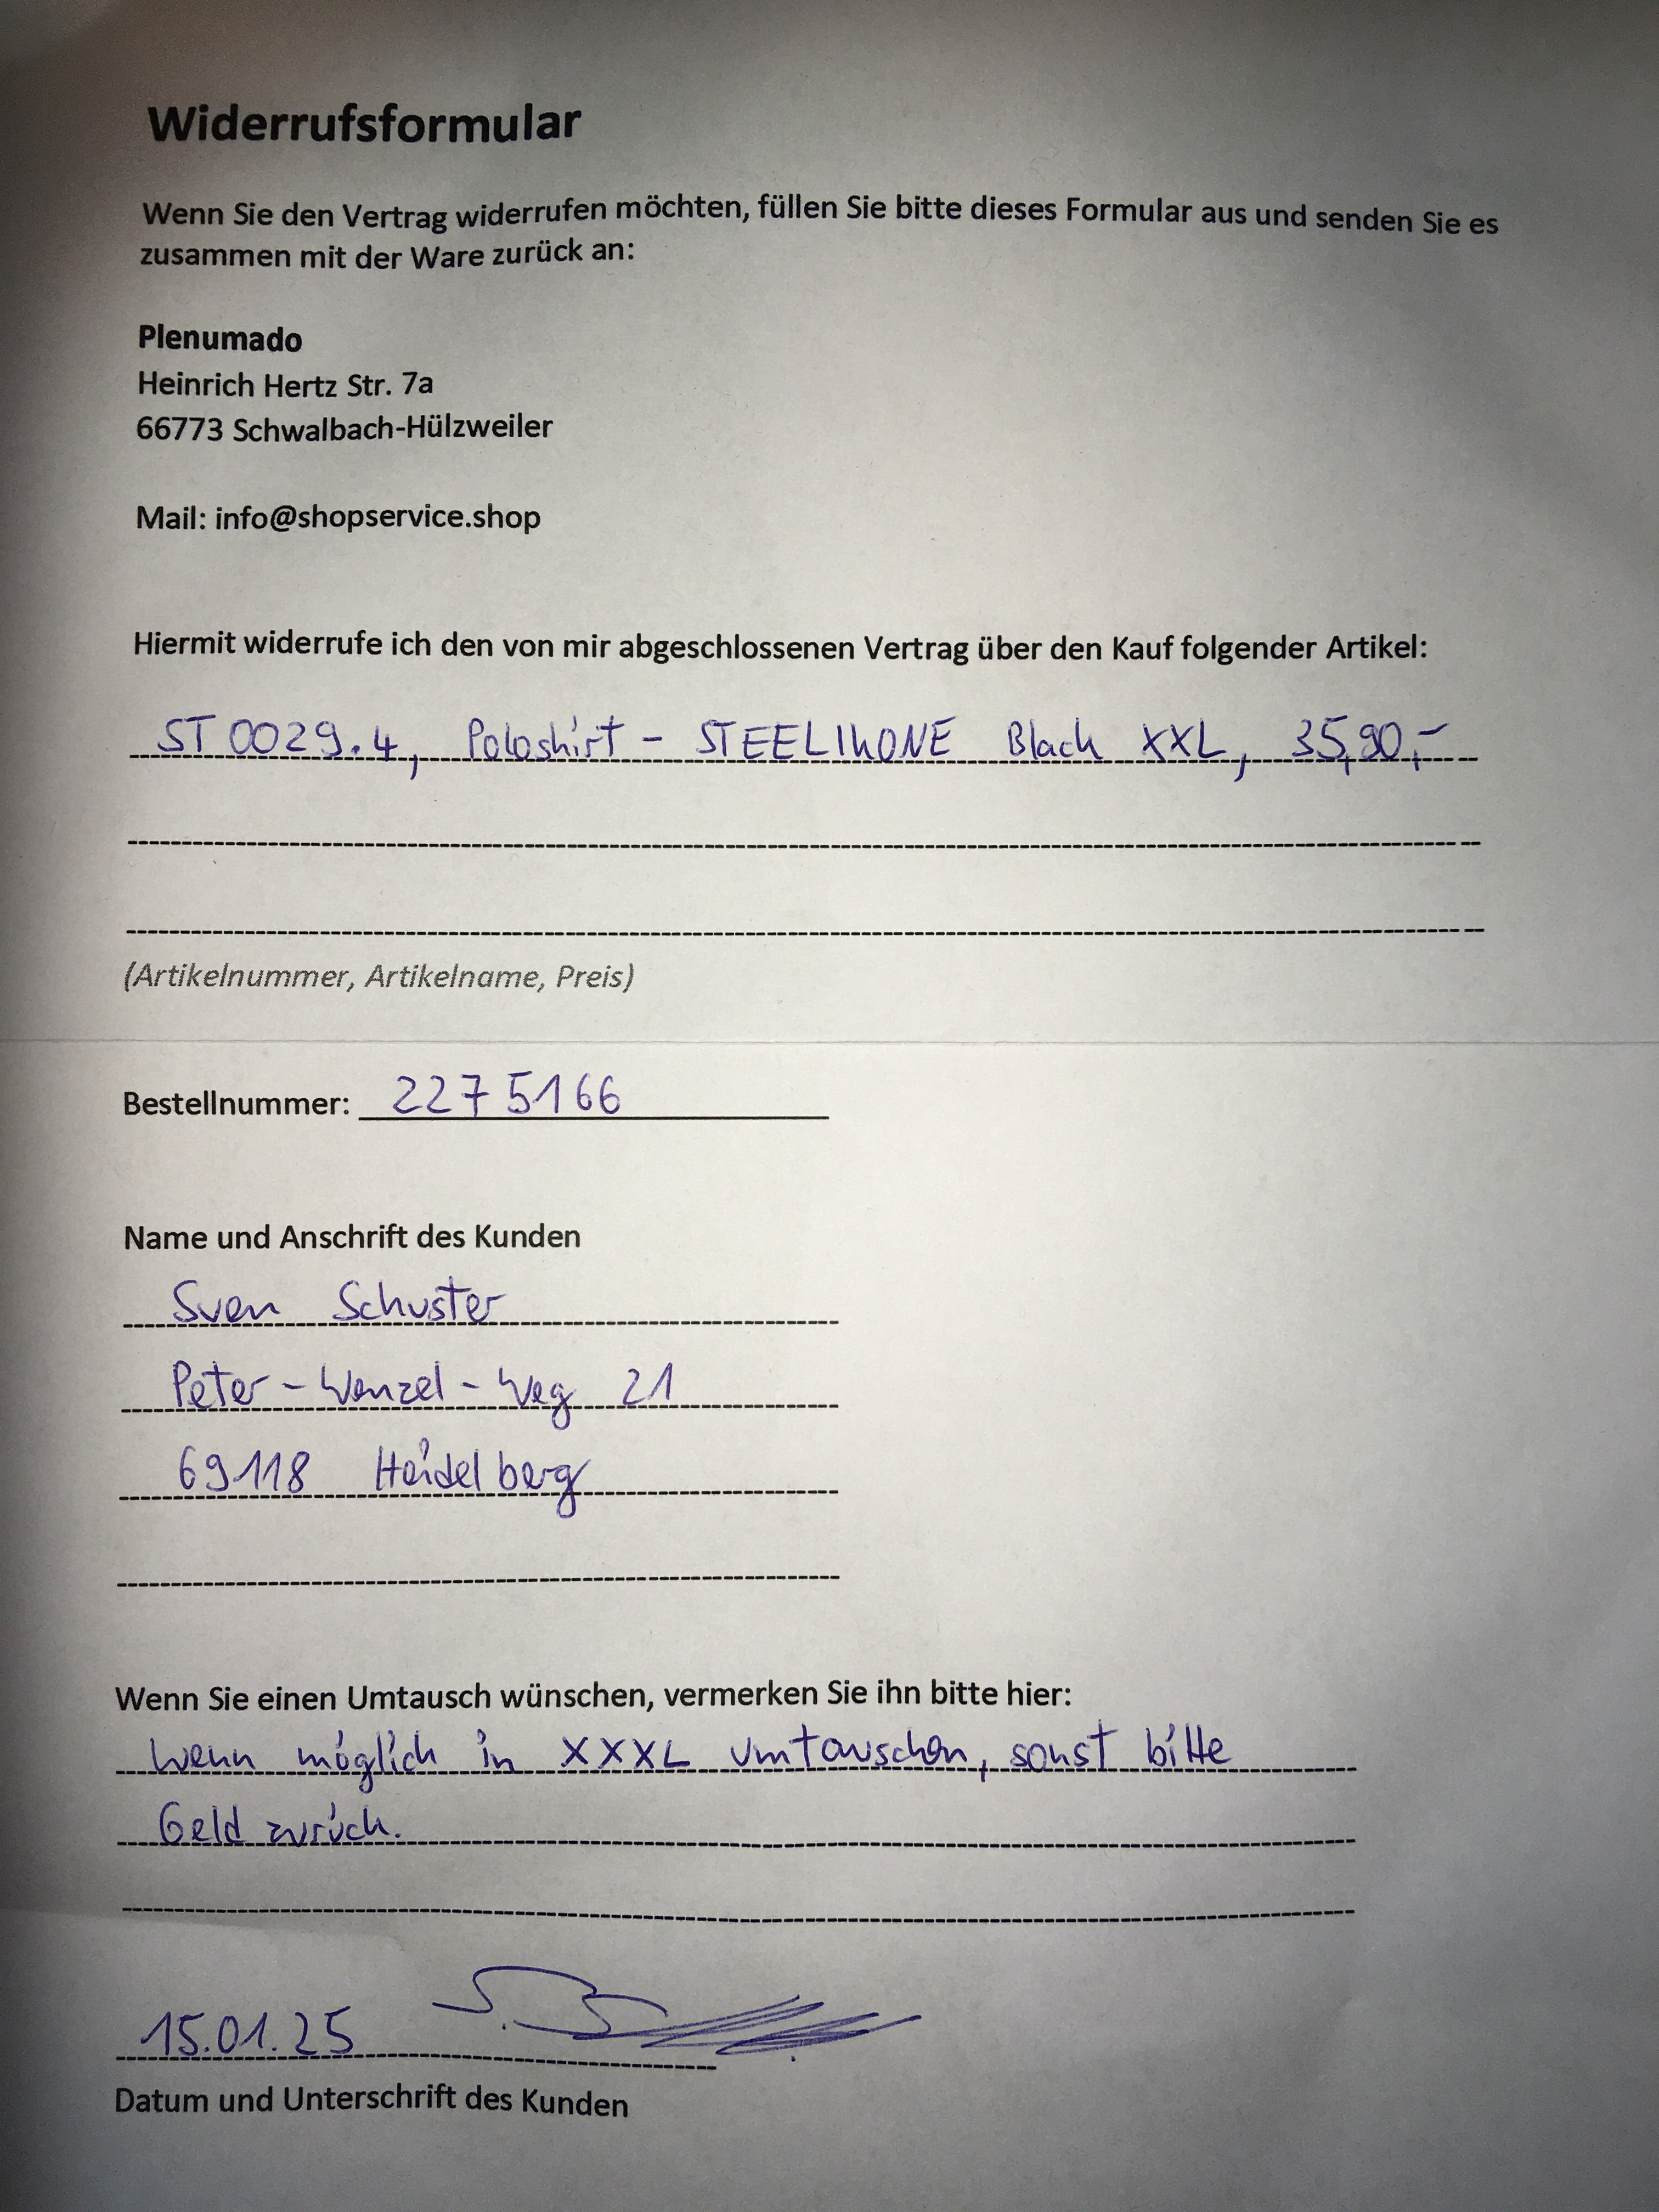 Widerrufsformular
Wenn Sie den Vertrag widerrufen möchten, füllen Sie bitte dieses Formular aus und senden Sie es
zusammen mit der Ware zurück an:
Plenumado
Heinrich Hertz Str. 7a
66773 Schwalbach-Hülzweiler
Mail: info@shopservice.shop
Hiermit widerrufe ich den von mir abgeschlossenen Vertrag über den Kauf folgender Artikel:
ST0029.4, Poloshirt - STEELIKONE Black XXL, 35,90,-
(Artikelnummer, Artikelname, Preis)
Bestellnummer: 2275166
Name und Anschrift des Kunden
Sven Schuster
Peter-Wenzel-Weg 21
69118 Heidelberg
Wenn Sie einen Umtausch wünschen, vermerken Sie ihn bitte hier:
Wenn möglich in XXXL umtauschen, sonst bitte
Geld zurück.
15.01.25
Datum und Unterschrift des Kunden